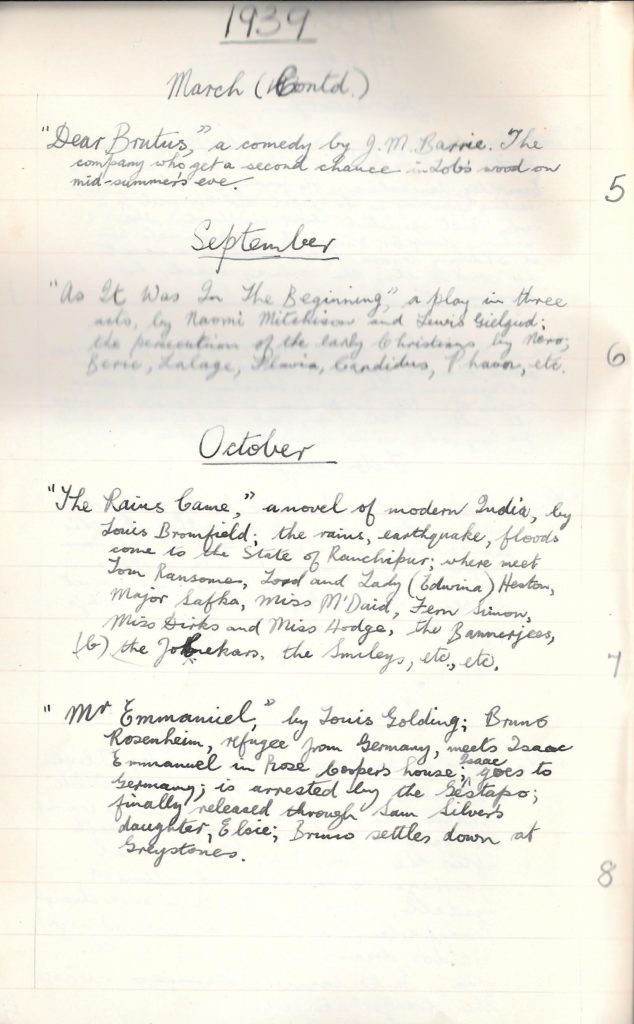 1939
March (Contd.)
"Dear Brutus," a comedy by J. M. Barrie. The
company who get a second chance in Lob's wood on
mid-summer's eve.
5
September
"As It Was In The Beginning," a play in three
acts, by Naomi Mitchison and Lewis Gielgud;
the persecutions of the early Christians by Nero;
Beric, Lalage, Flavia, Candidus, Phaon, etc.
6
October
"The Rains Came," a novel of modern India, by
Louis Bromfield; the rains, earthquake, floods
come to the State of Ranchipur; where meet
Tom Ransome, Lord and Lady (Edwina) Heston,
Major Safka, Miss M'Daid, Fern Simon,
Miss Dirks and Miss Hodge, the Bannerjees,
(b) the the Smileys, etc., etc.
7
"Mr Emmanuel," by Louis Golding; Bruno
Rosenheim, refugee from Germany, meets Isaac
Emmanuel in Rose Cooper's house; Isaac goes to
Germany; is arrested by the Gestapo;
finally released through Sam Silver's
daughter, Elsie; Bruno settles down at
Greystones.
8